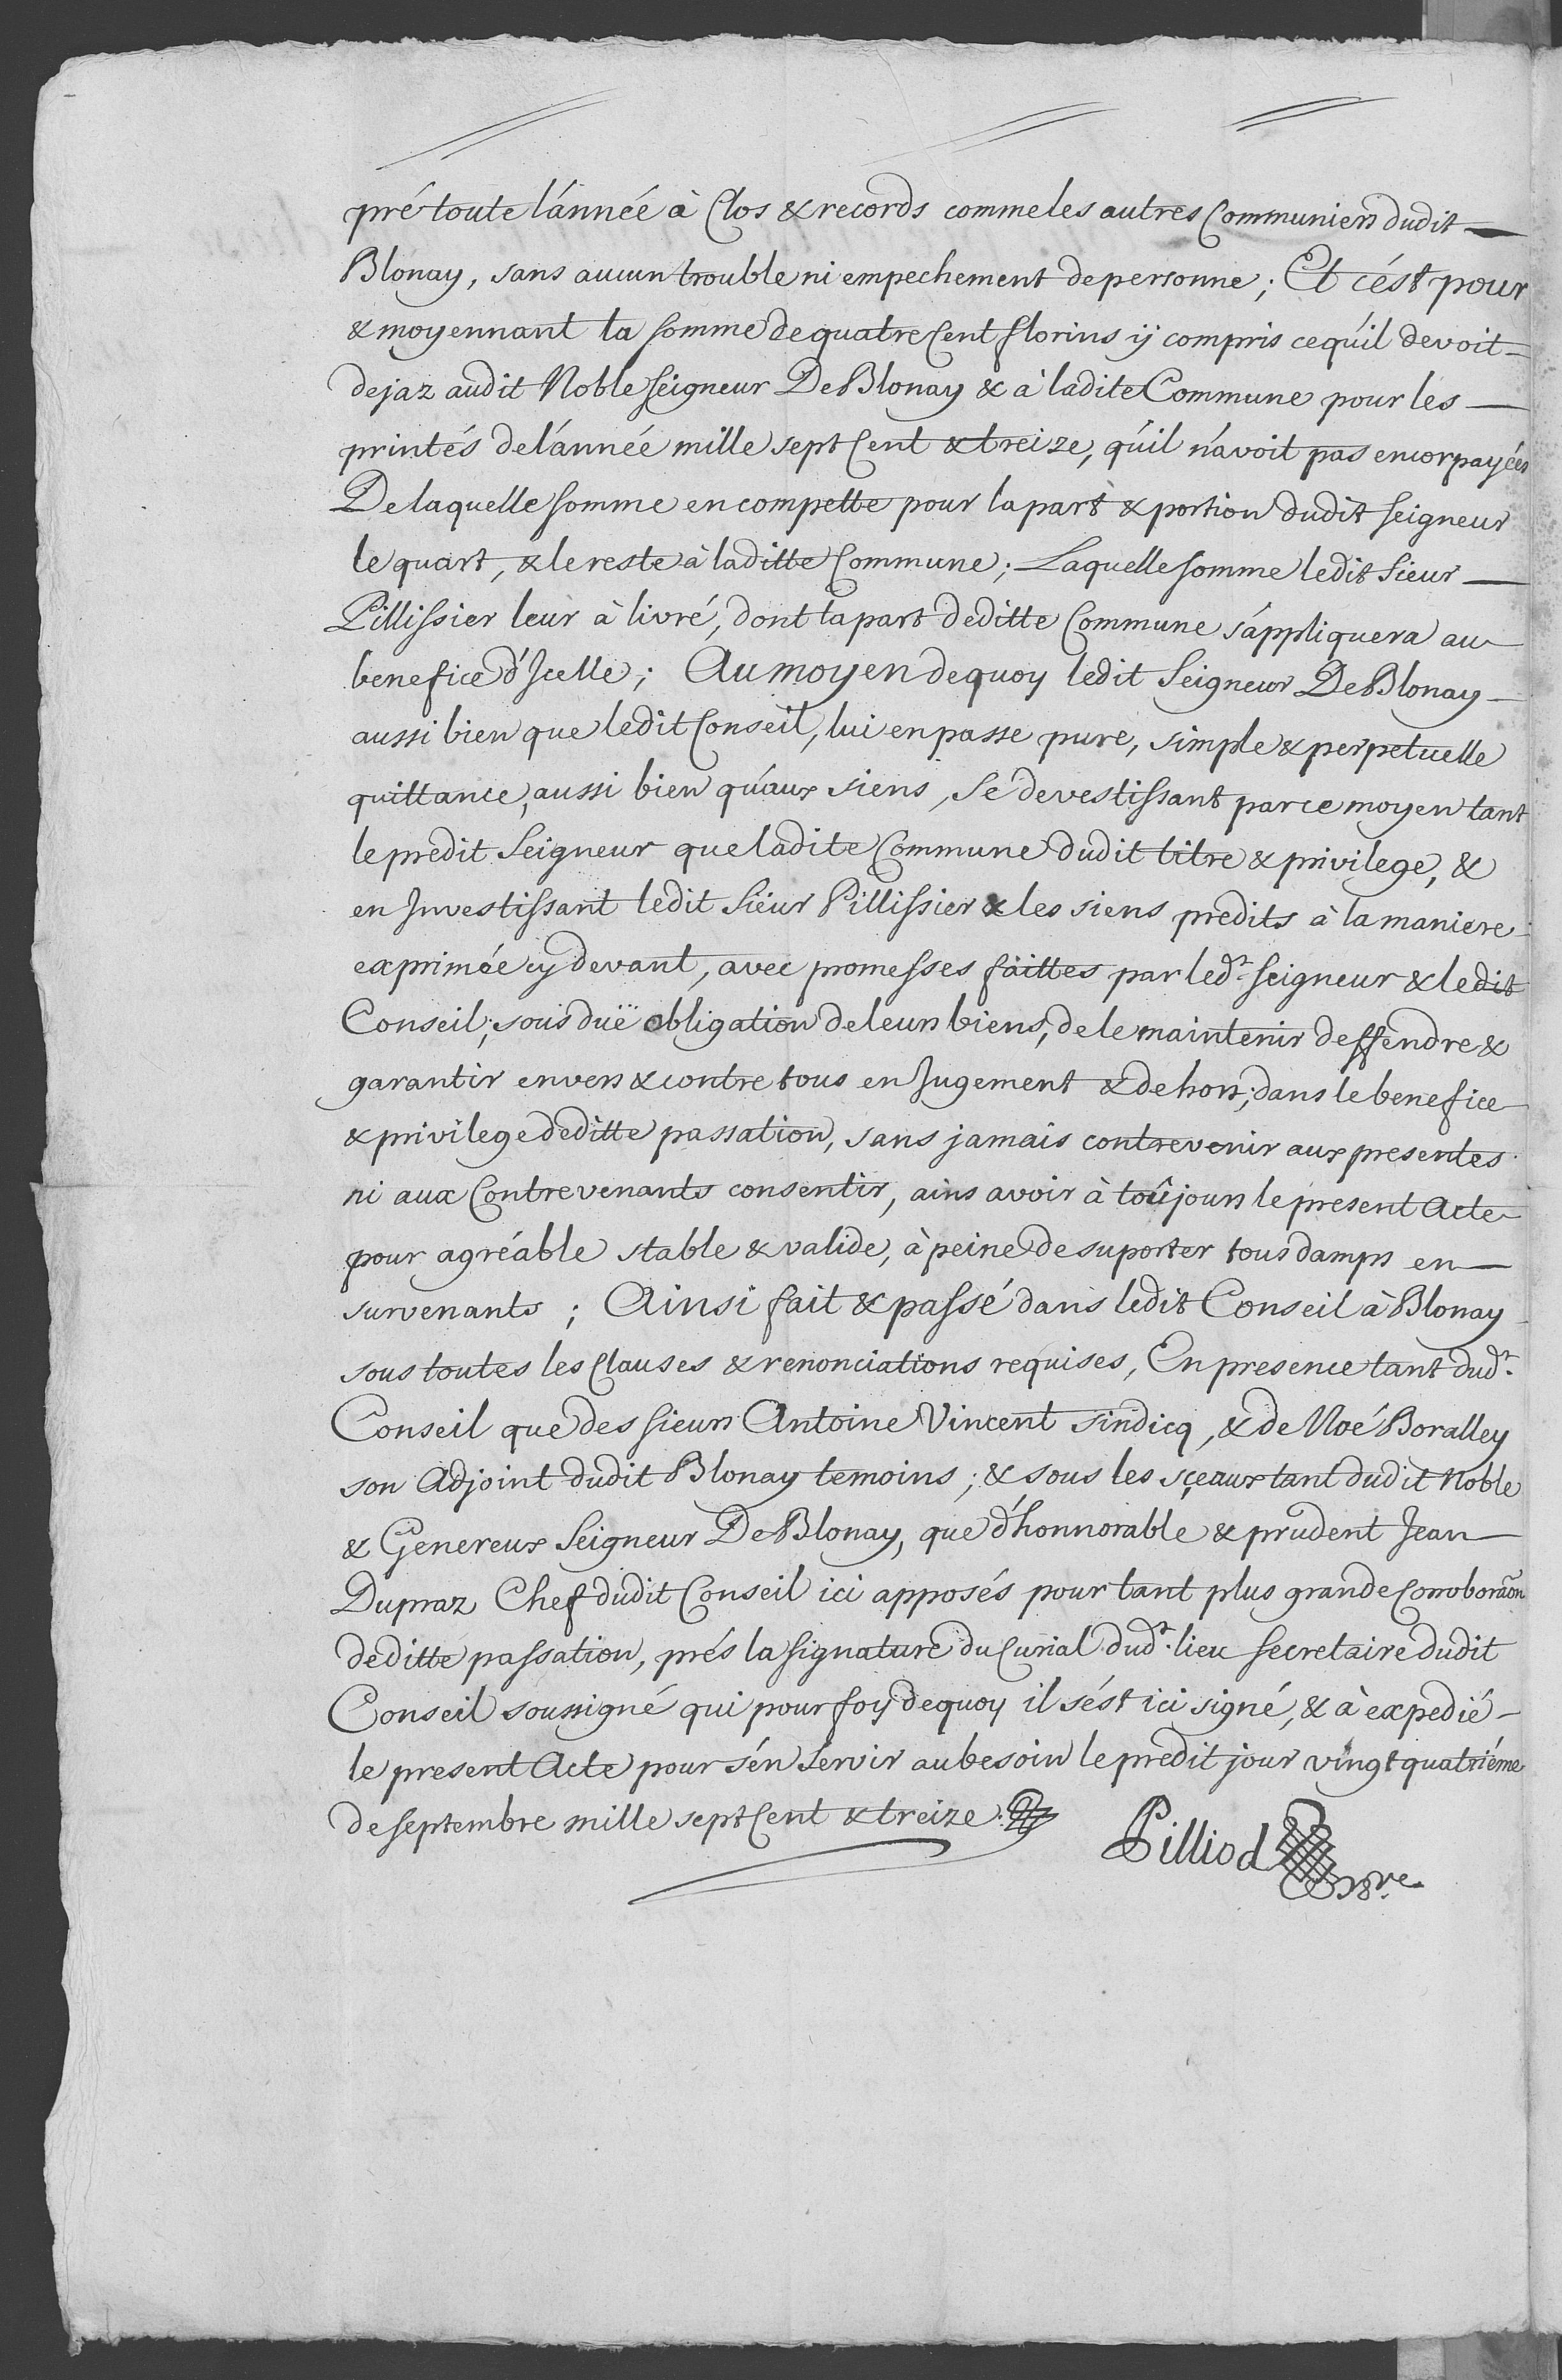 pré toute l'année à Clos & records comme les autres Communiers dudit
Blonay, sans aucun trouble ni empechement de personne; Et c'ést pour
& moyennant la somme de quatre Cent florins ÿ compris ce qu'il devoit
dejaz audit Noble seigneur De Blonay & à ladite Commune pour les
printés de l'année mille sept Cent & treize, qu'il n'avoit pas encor payées
De laquelle somme en compette pour la part & portion dudit seigneur
le quart, & le reste à laditte Commune; Laquelle somme ledit Sieur
Pillissier leur à livré, dont la part deditte Commune s'áppliquera au
benefice d'Icelle; Au moyen dequoy ledit Seigneur De Blonay
aussi bien que ledit Conseil, lui en passe pure, simple & perpetuelle
quittance, aussi bien qu'aux siens, Se devestissant par ce moyen tant
le predit Seigneur que ladite Commune dudit titre & privilege, &
en Investissant ledit Sieur Pillissier & les siens predits à la maniere
exprimée cy devant, avec promesses faittes par led.t seigneur & ledit
Conseil, sous duë obligation de leurs biens, de le maintenir deffendre &
garantir envers & contre tous en Jugement & dehors, dans le benefice
& privilege deditte passation, sans jamais contrevenir aux presentes
ni aux Contrevenants consentir, ains avoir à toûjours le present Acte
pour agréable stable & valide, à peine de suporter tous damps en
survenants; Ainsi fait & passé dans ledit Conseil à Blonay
sous toutes les Clauses & renonciations requises, En presence tant dud.t
Conseil que des sieurs Antoine Vincent sindicq, & de Noé Boralley
son Adjoint dudit Blonay temoins; & sous les sçeaux tant dudit Noble
& Genereux Seigneur De Blonay, que d'honnorable & prudent Jean
Dupraz Chef dudit Conseil ici apposés pour tant plus grande Corroboraõn
deditte passation, prés la signature du Curial dud.t lieu secretaire dudit
Conseil soussigné qui pour foy dequoy il s'ést ici signé, & à expedié
le present Acte pour s'én Servir au besoin le predit jour vingt quatriéme
de septembre mille sept Cent & treize.
Pilliod